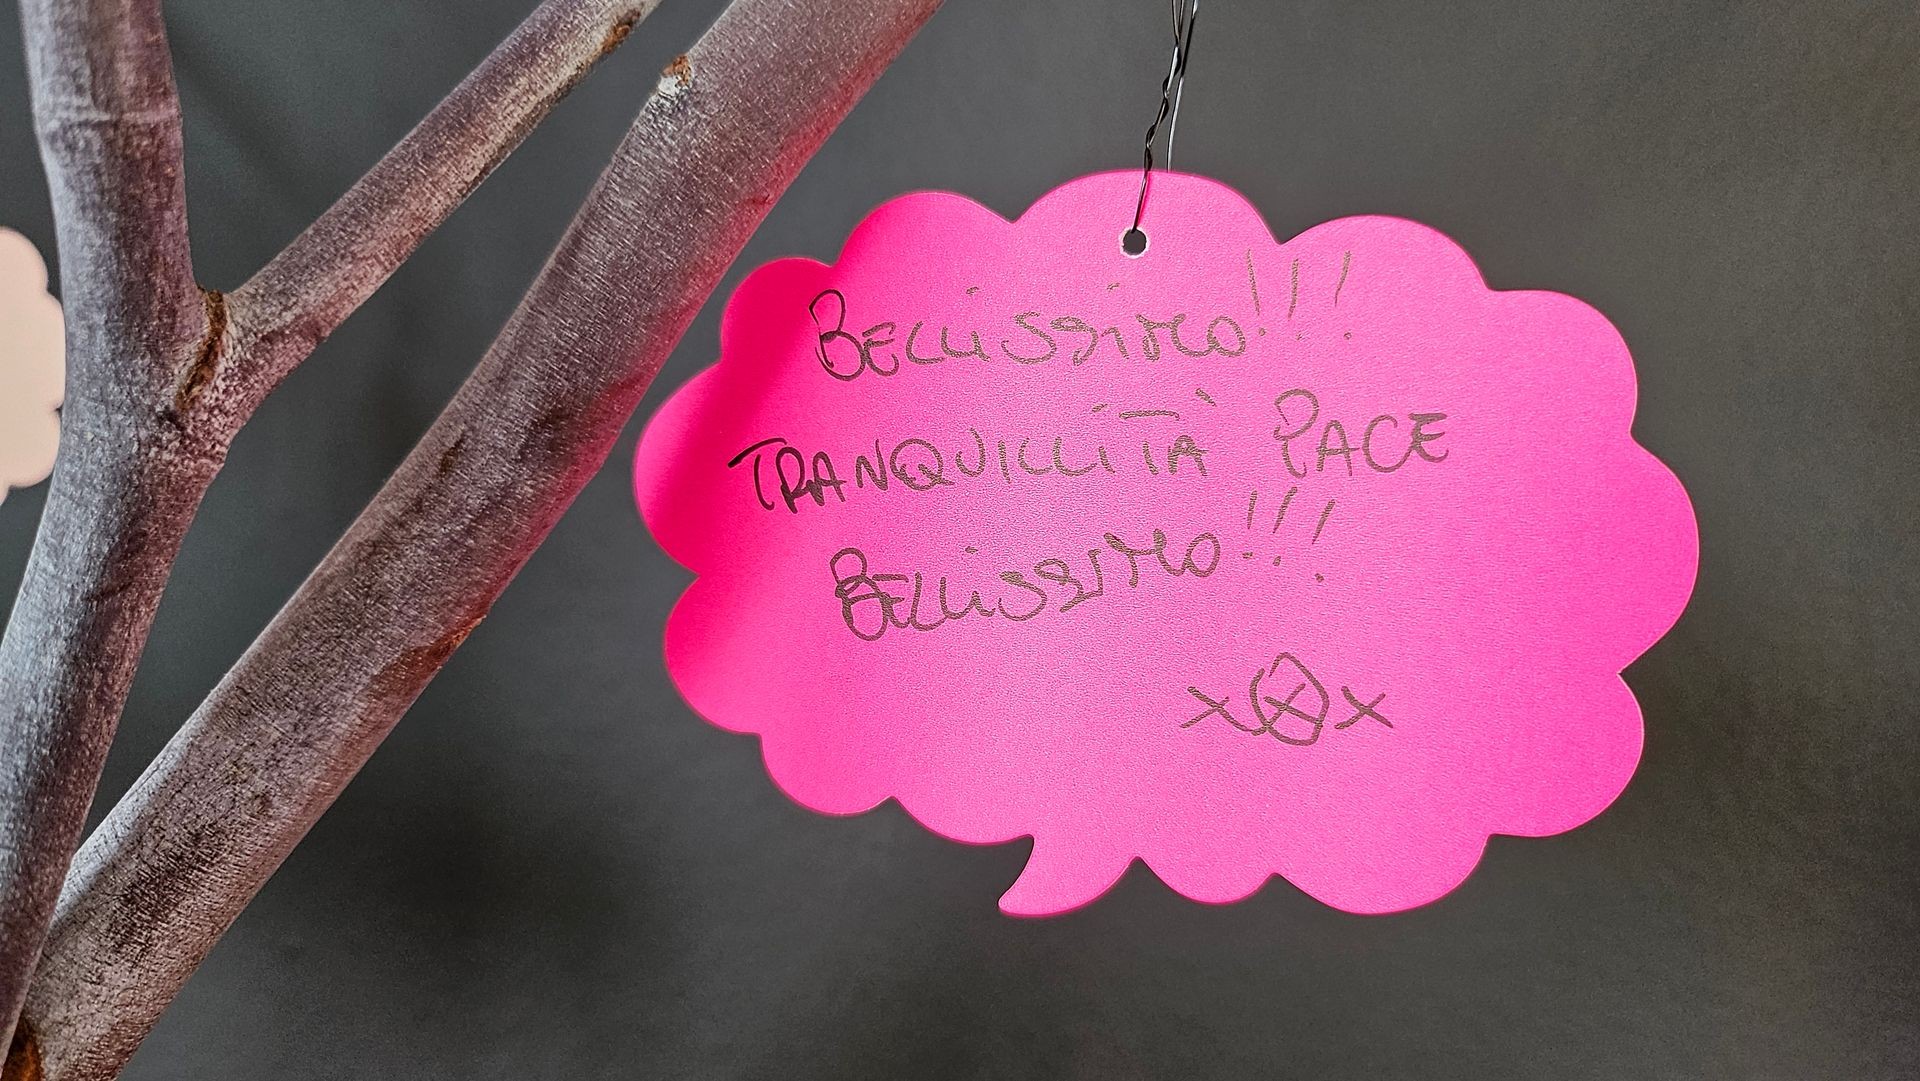 BELLISSIMO!!!
TRANQUILLITÀ PACE
BELLISSIMO!!!
xOxOx